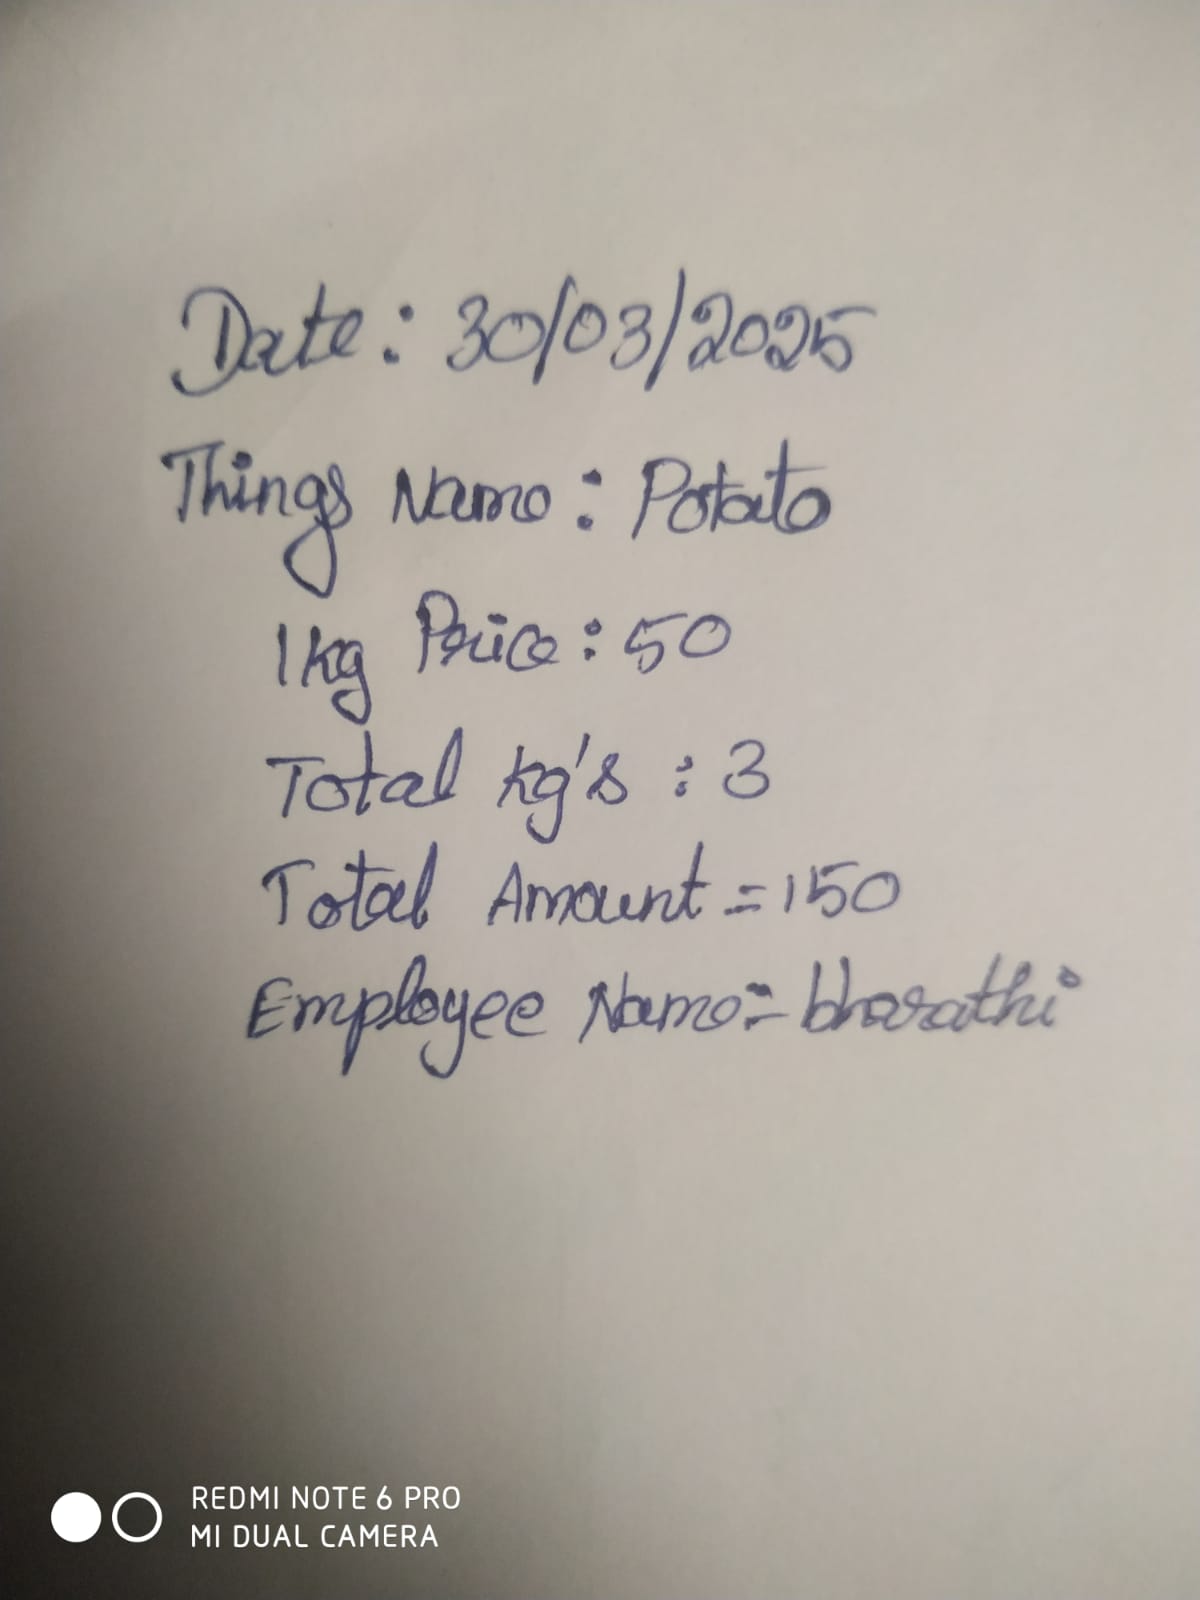 Date: 30/03/2025
Things Name: Potato
1kg Price: 50
Total kg's : 3
Total Amount = 150
Employee Name = bharathi
REDMI NOTE 6 PRO
MI DUAL CAMERA